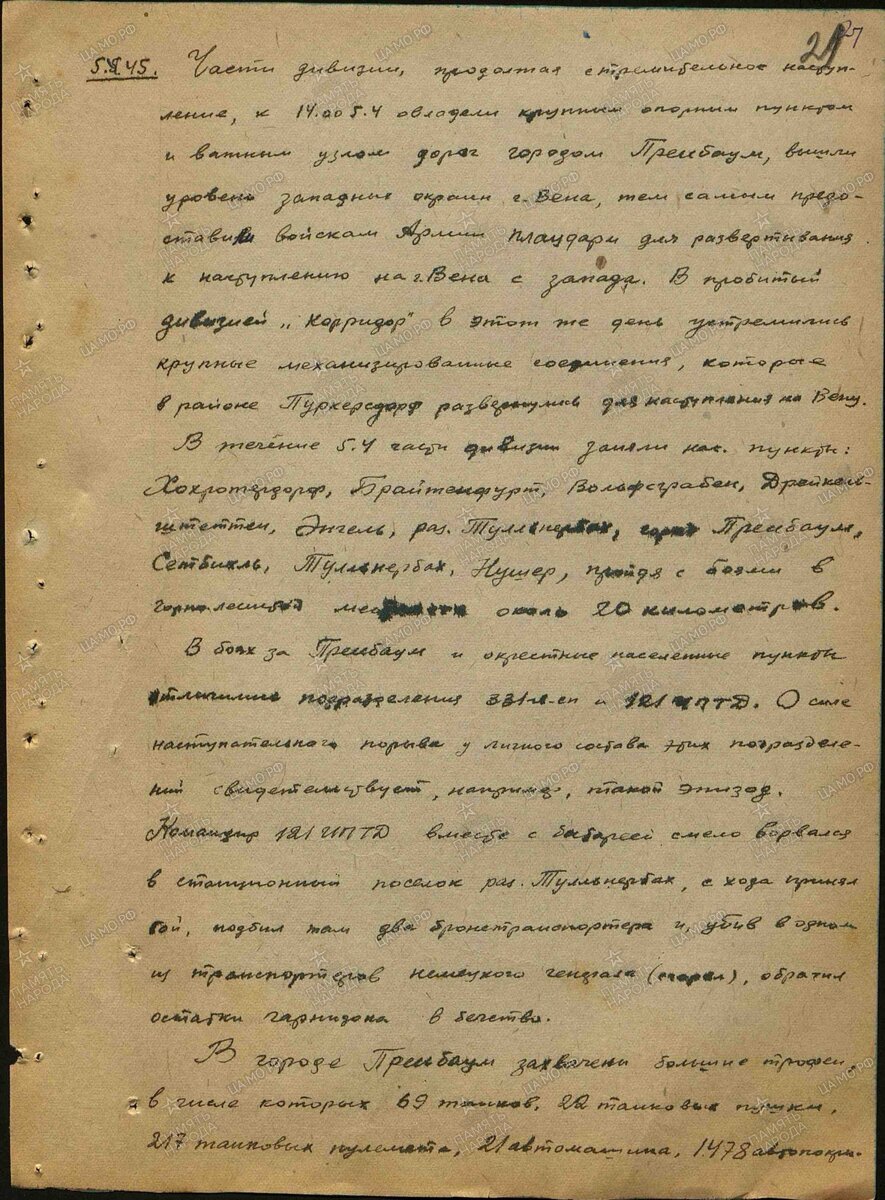 27
5.4.45. Части дивизии, продолжая стремительное наступ-
ление, к 14.00 5.4 овладели крупным опорным пунктом
и важным узлом дорог городом Пресбаум, вышли
уровень западных окраин г. Вена, тем самым предо-
ставили войскам Армии плацдарм для развертывания
к наступлению на г. Вена с запада. В пробитый
дивизией „корридор" в этот же день устремились
крупные механизированные соединения, которые
в районе Пуркерсдорф развернулись для наступления на Вену.
В течение 5.4 части дивизии заняли нас. пункты:
Хохротердорф, Брайтенфурт, Вольфсграбен, Дрейкель-
штеттен, Энгель, раз. Тулльнербах, город Пресбаум,
Сетбихль, Тулльнербах, Нушер, пройдя с боями в
горнолесистой местности около 20 километров.
В боях за Пресбаум и окрестные населенные пункты
отличились подразделения 331 сп и 121 ИПТД. О силе
наступательного порыва у личного состава этих подразделе-
ний свидетельствует, например, такой эпизод.
Командир 121 ИПТД вместе с батареей смело ворвался
в станционный поселок раз. Тулльнербах, с хода принял
бой, подбил там два бронетранспортера и, убив в одном
из транспортеров немецкого генерала (сгорел), обратил
остатки гарнизона в бегство.
В городе Пресбаум захвачены большие трофеи,
в числе которых 69 танков, 22 танковых пушки,
217 танковых пулемета, 21 автомашина, 1478 автопокры-